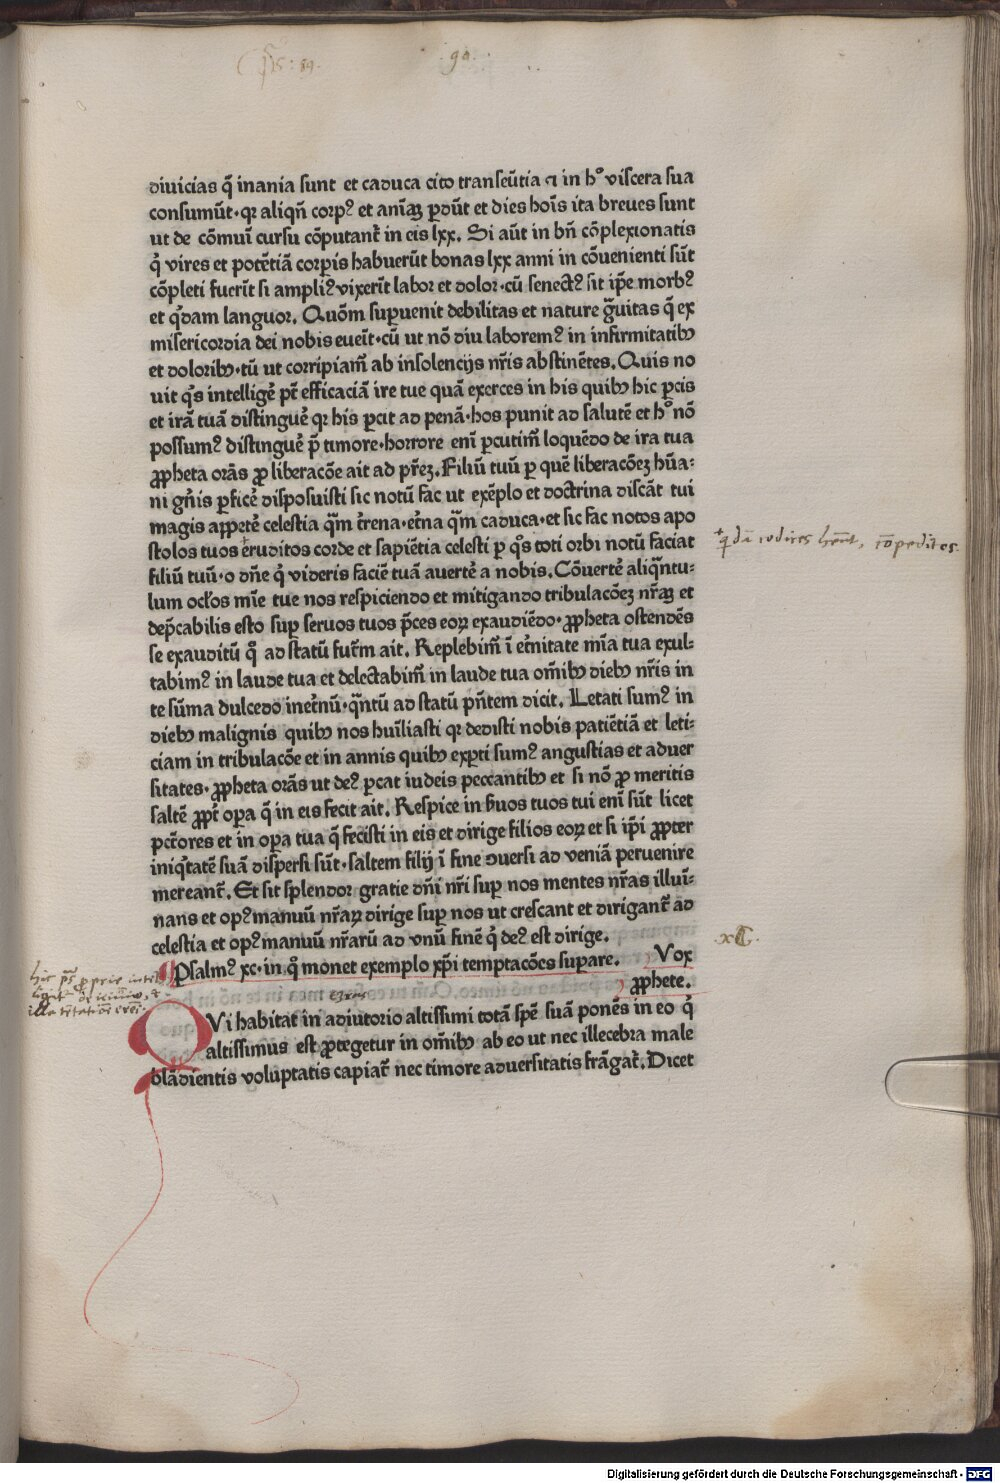 ps: 89.
90.
diuicias q̄ inania sunt et caduca cito transeūtia ⁊ in hᵒ viscera sua
consumūt·qꝛ aliqn̄ corpꝰ et aīaꝫ ꝑdūt et dies hoīs ita breues sunt
ut de cōmuī cursu cōputant᷑ in eis lxx. Si aūt in bn̄ cōplexionatis
q̇ vires et potētiā corꝑis habuerūt bonas lxx anni in cōuenienti sūt
cōpleti fuerīt si ampliꝰ vixerīt labor et dolor·cū senectꝰ sit ip̄e morbꝰ
et q̇dam languor. Quōm suꝑuenit debilitas et nature g̅uitas q̄ ex
misericordia dei nobis eueīt·cū ut nō diu laboremꝰ in infirmitatibꝰ
et doloribꝰ·tū ut corripiam̄ ab insolencijs nr̄is abstinētes. Quis no
uit q̇s intelligē pt̄ efficaciā ire tue quā exerces in his quibꝰ hic ꝑcis
et irā tuā distinguē qꝛ his ꝑcit ad penā·hos punit ad salutē et hᵒ nō
possumꝰ distinguē p̄ timore·horrore enī ꝑcutim̄ loquēdo de ira tua
ꝓpheta orās ꝓ liberacōe ait ad pr̄eꝫ. Filiū tuū ꝑ quē liberacōeꝫ hūa⸗
ni gn̄is ꝑficē disposuisti sic notū fac ut exēplo et doctrina discāt tui
magis appetē celestia q̄m t̄rena·et̄na q̄m caduca·et sic fac notos apo
stolos tuos eruditos corde et sapiētia celesti ꝑ q̇s toti orbi notū faciat
filiū tuū·o dn̄e q̇ videris faciē tuā auertē a nobis. Cōuertē aliq̄ntu⸗
lum ocl̄os mīe tue nos respiciendo et mitigando tribulacōeꝫ nr̄aꝫ et
dep̄cabilis esto suꝑ seruos tuos p̄ces eoꝝ exaudiēdo·ꝓpheta ostendēs
se exauditū q̊ ad statū fut̄m ait. Replebim̄ ī et̄nitate mīa tua exul⸗
tabimꝰ in laude tua et delectabim̄ in laude tua om̄ibꝰ diebꝰ nr̄is in
te sūma dulcedo inet̄nū·q̄ntū ad statū pn̄tem dicit. Letati sumꝰ in
diebꝰ malignis quibꝰ nos huīliasti qꝛ dedisti nobis patiētiā et leti⸗
ciam in tribulacōe et in annis quibꝰ exꝑti sumꝰ angustias et aduer
sitates·ꝓpheta orās ut deꝰ ꝑcat iudeis peccantibꝰ et si nō ꝓ meritis
saltē ꝓpt̄ oꝑa q̄ in eis fecit ait. Respice in s̄uos tuos tui enī sūt licet
pct̄ores et in oꝑa tua q̄ fecisti in eis et dirige filios eoꝝ et si ip̄i ꝓpter
iniq̇tatē suā dispersi sūt·saltem filij ī fine ɔuersi ad veniā peruenire
mereant᷑. Et sit splendor gratie dn̄i nr̄i suꝑ nos mentes nr̄as illuī⸗
nans et opꝰ manuū nr̄aꝝ dirige suꝑ nos ut crescant et dirigant᷑ ad
celestia et opꝰ manuū nr̄arū ad vnū finē q̇ deꝰ est dirige.
Psalmꝰ xc·in q̊ monet exemplo xp̄i temptacōes suꝑare. Vox
ꝓphete.
QVi habitat in adiutorio altissimi totā spē suā ponēs in eo q̇
altissimus est ꝓtegetur in om̄ibꝰ ab eo ut nec illecebra male
blādientis voluptatis capiat᷑ nec timore aduersitatis frāgat᷑. Dicet
q̇dā codices hēnt, cōpeditos.
xC.